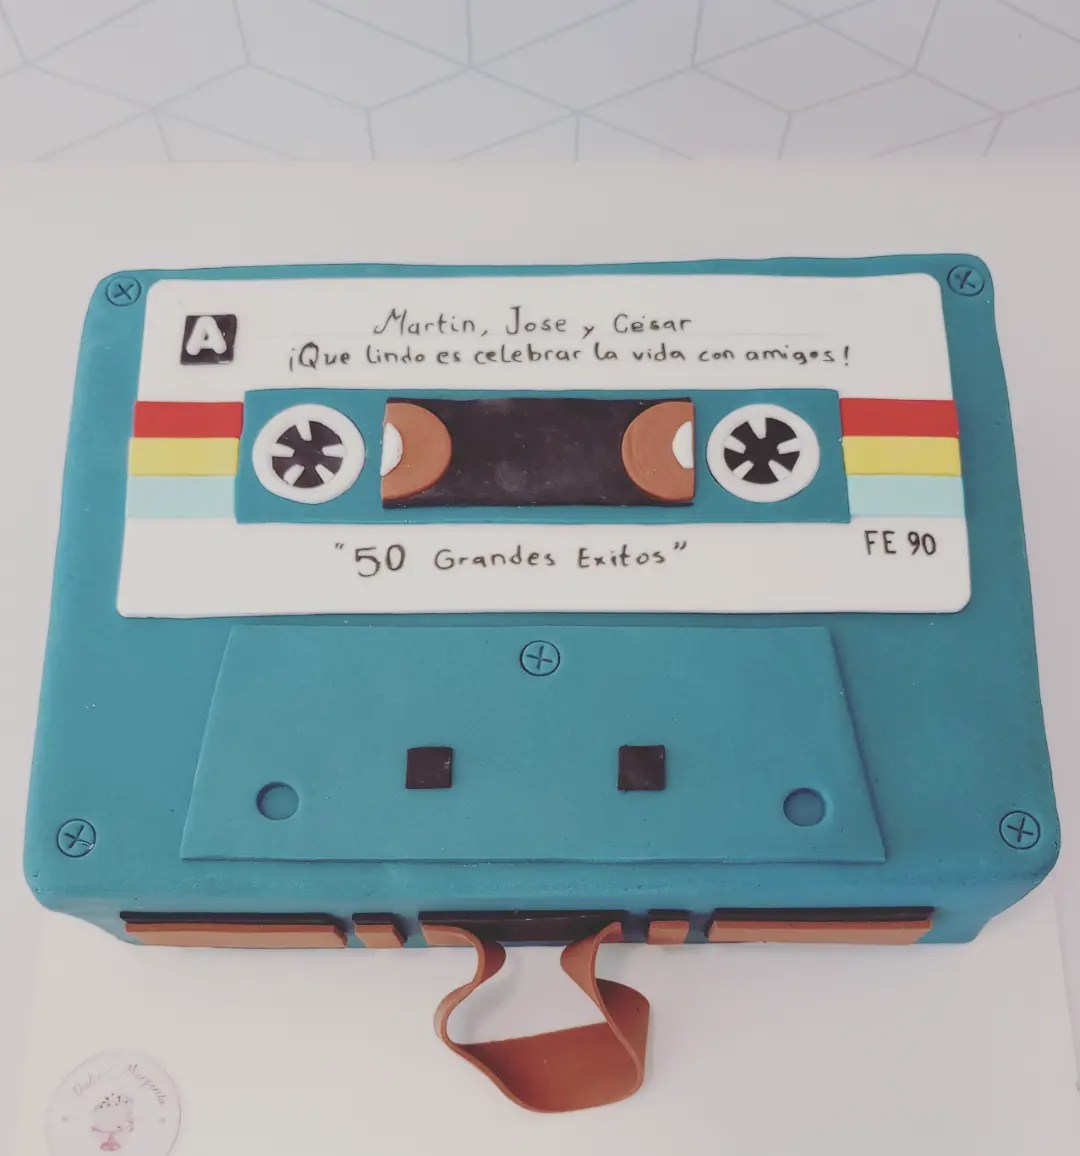 A
Martin, Jose y César
¡Que lindo es celebrar la vida con amigos!
"50 Grandes Exitos"
FE 90
Dulce Margarita